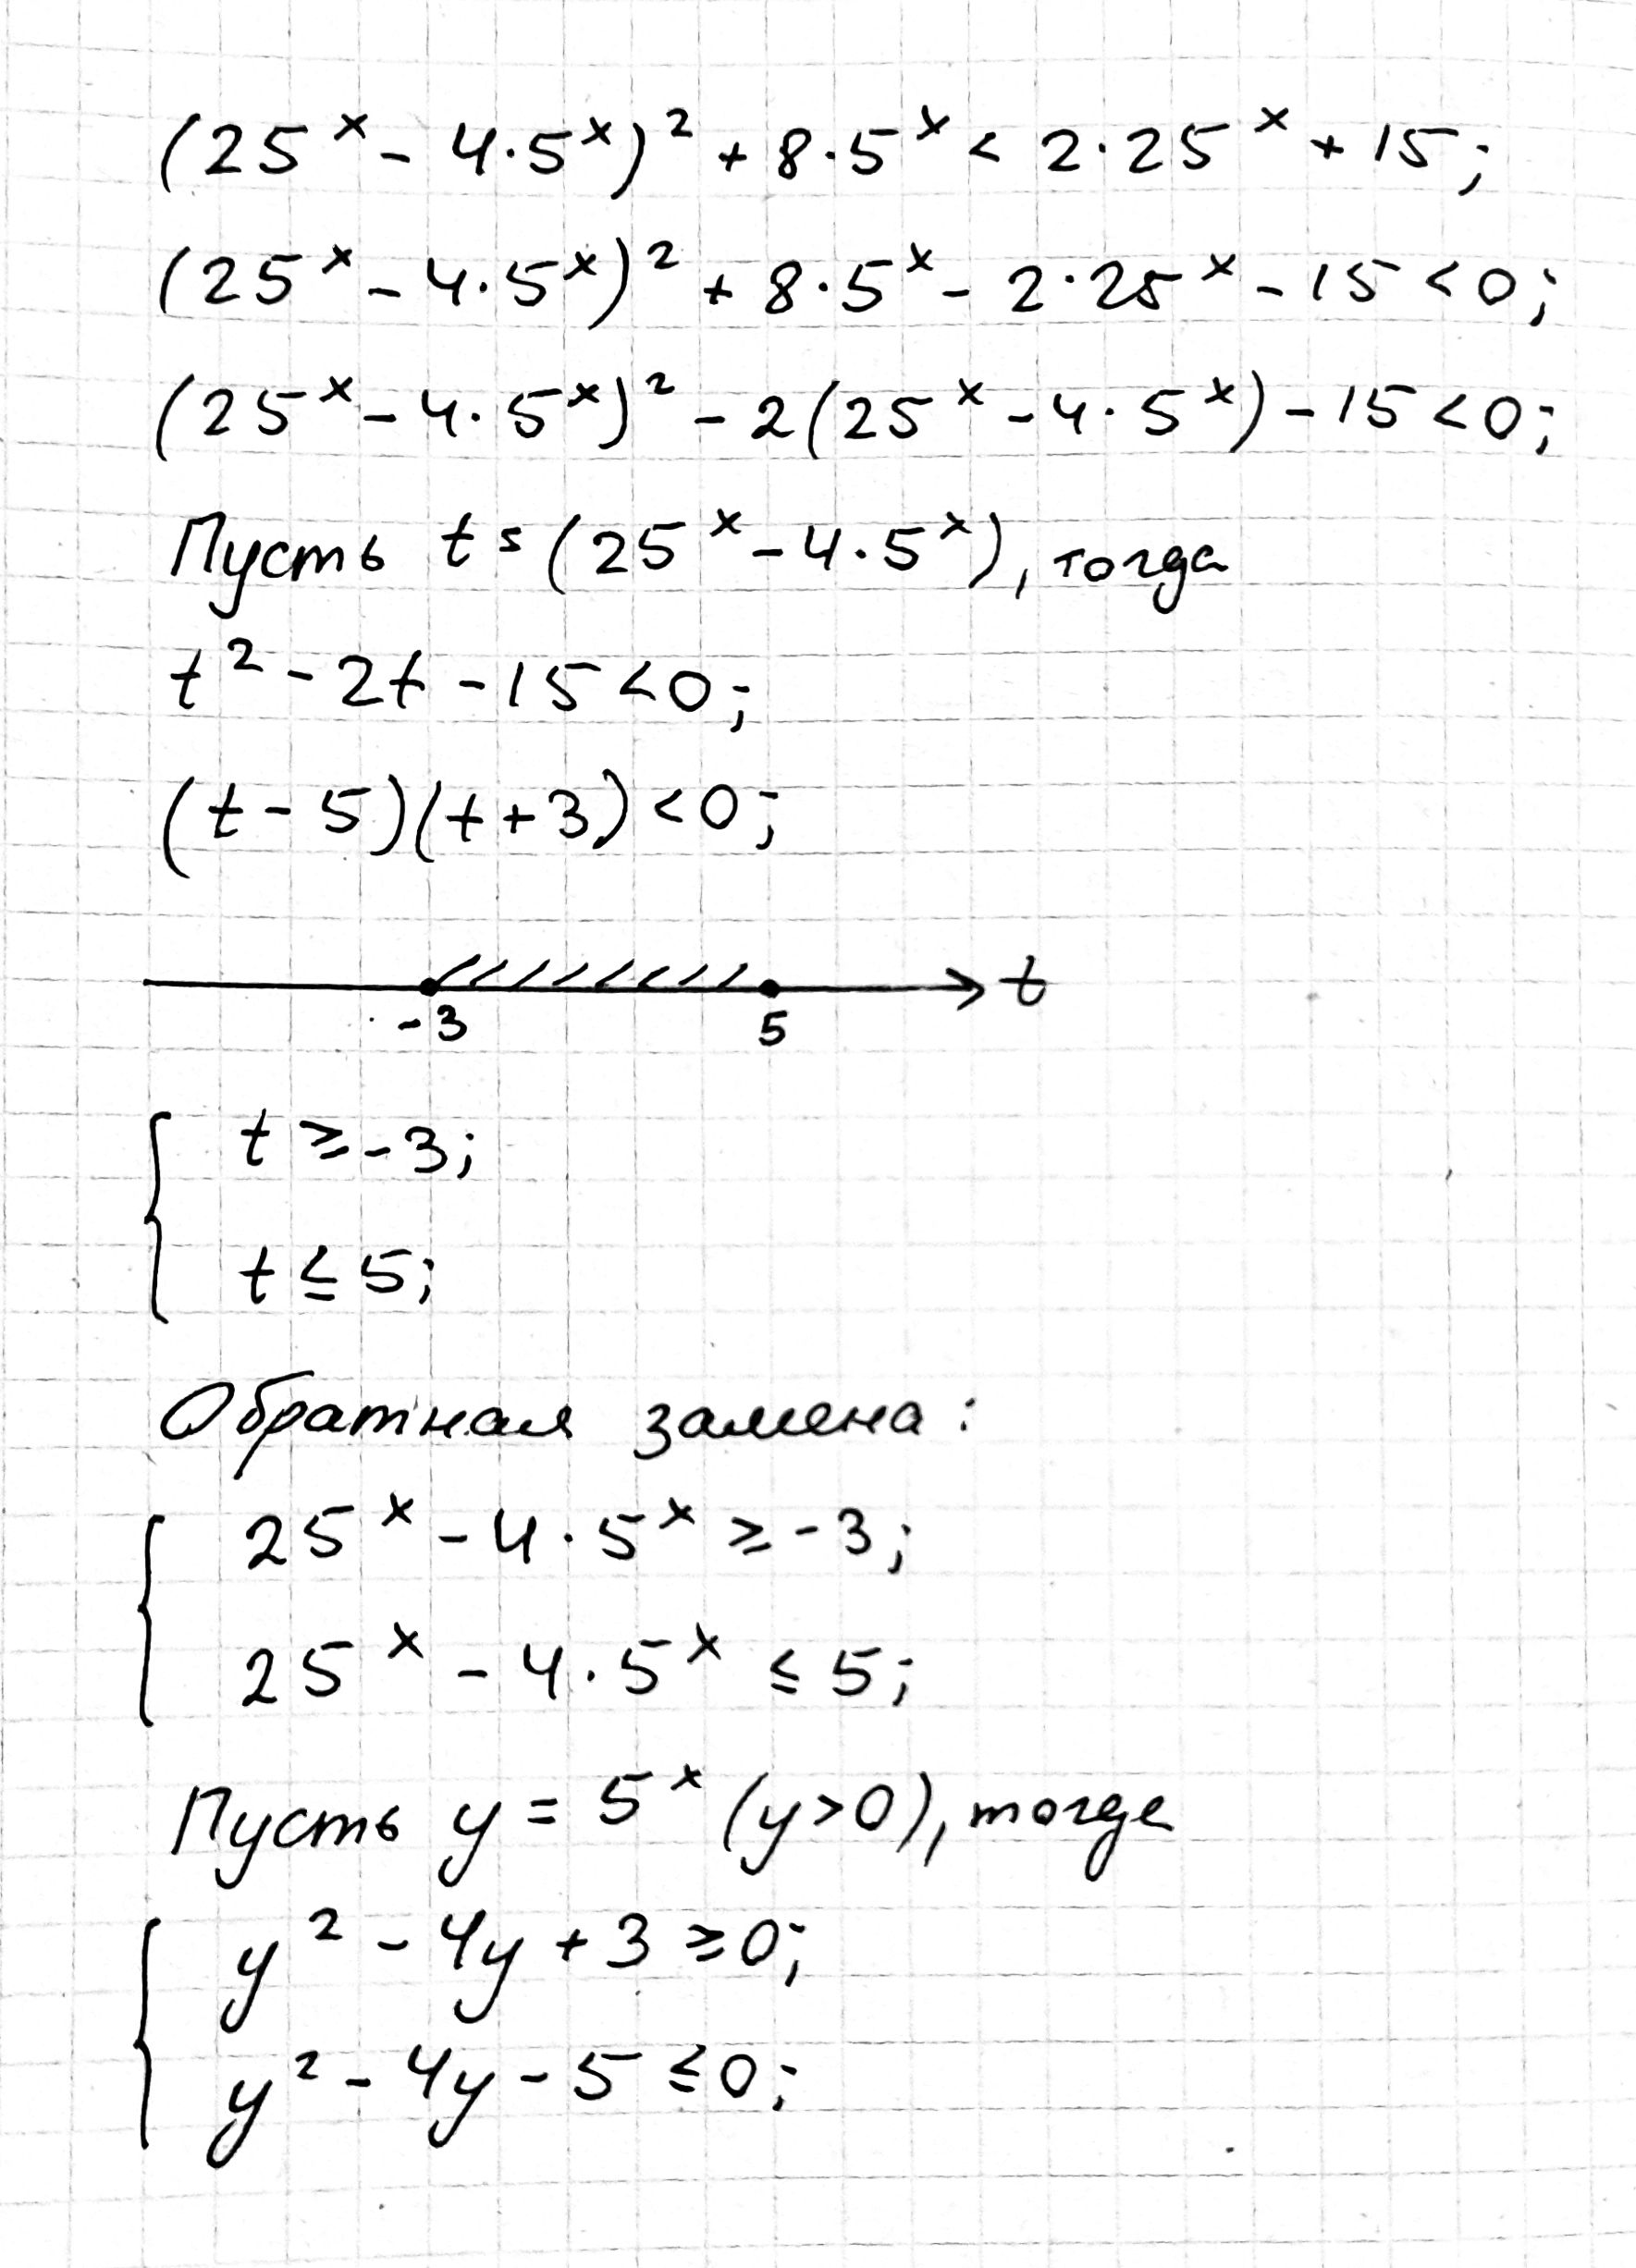 (25^x - 4·5^x)^2 + 8·5^x < 2·25^x + 15;
(25^x - 4·5^x)^2 + 8·5^x - 2·25^x - 15 < 0;
(25^x - 4·5^x)^2 - 2(25^x - 4·5^x) - 15 < 0;
Пусть t = (25^x - 4·5^x), тогда
t^2 - 2t - 15 < 0;
(t - 5)(t + 3) < 0;
-3 5 t
t ≥ -3;
t ≤ 5;
Обратная замена:
25^x - 4·5^x ≥ -3;
25^x - 4·5^x ≤ 5;
Пусть y = 5^x (y > 0), тогда
y^2 - 4y + 3 ≥ 0;
y^2 - 4y - 5 ≤ 0;